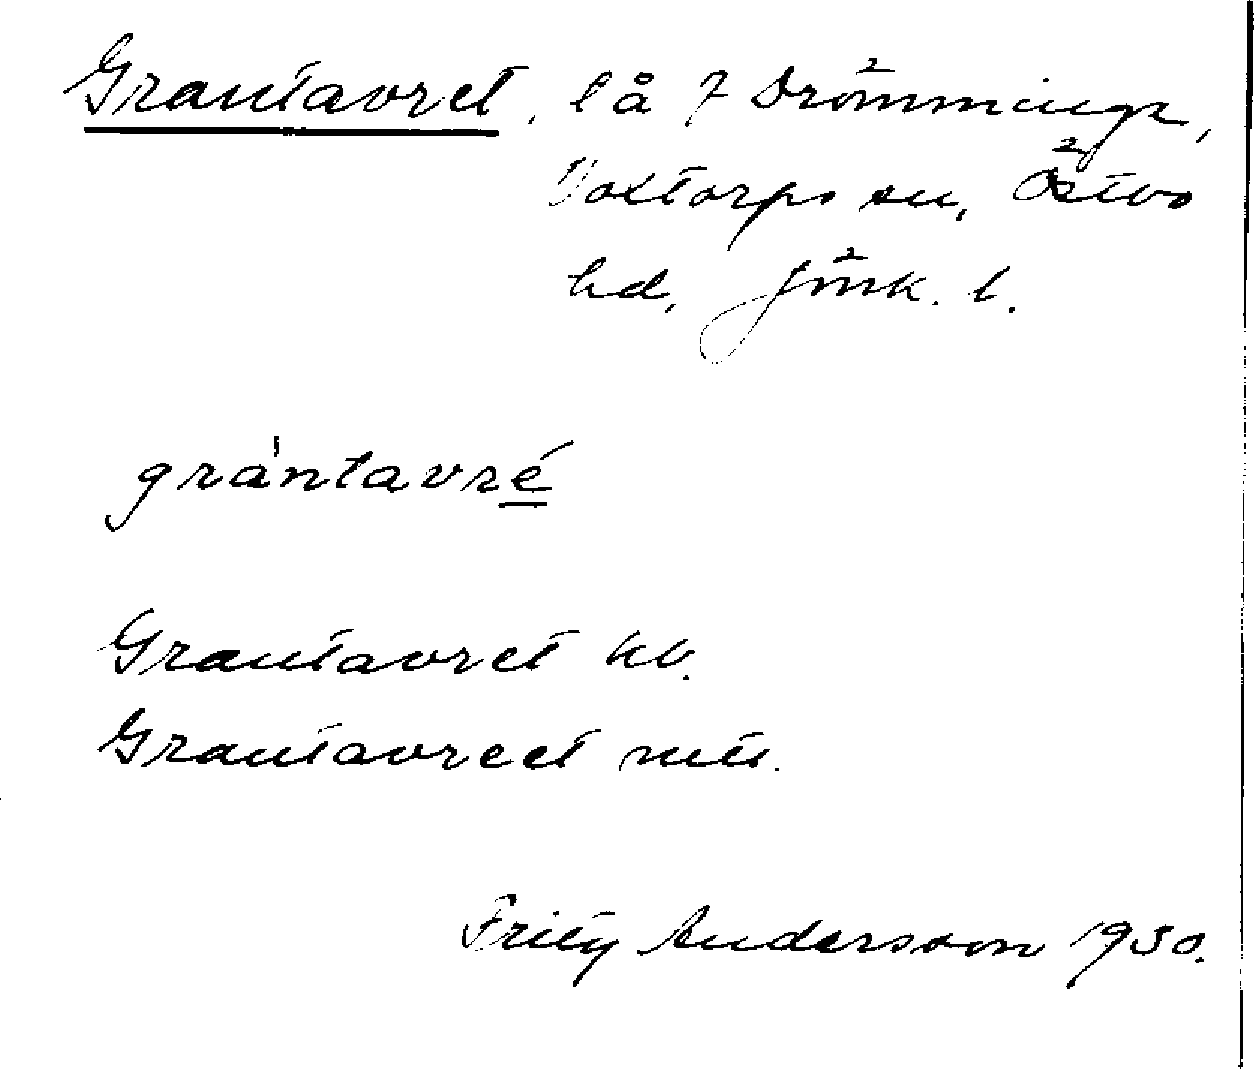 Grantavret, lå 7 Drömminge,
Voxtorps sn, Östbo
hd, Jönk. l.
grantavré
Grantavret kb.
Grantavreet mtl.
Fritz Andersson 1930.